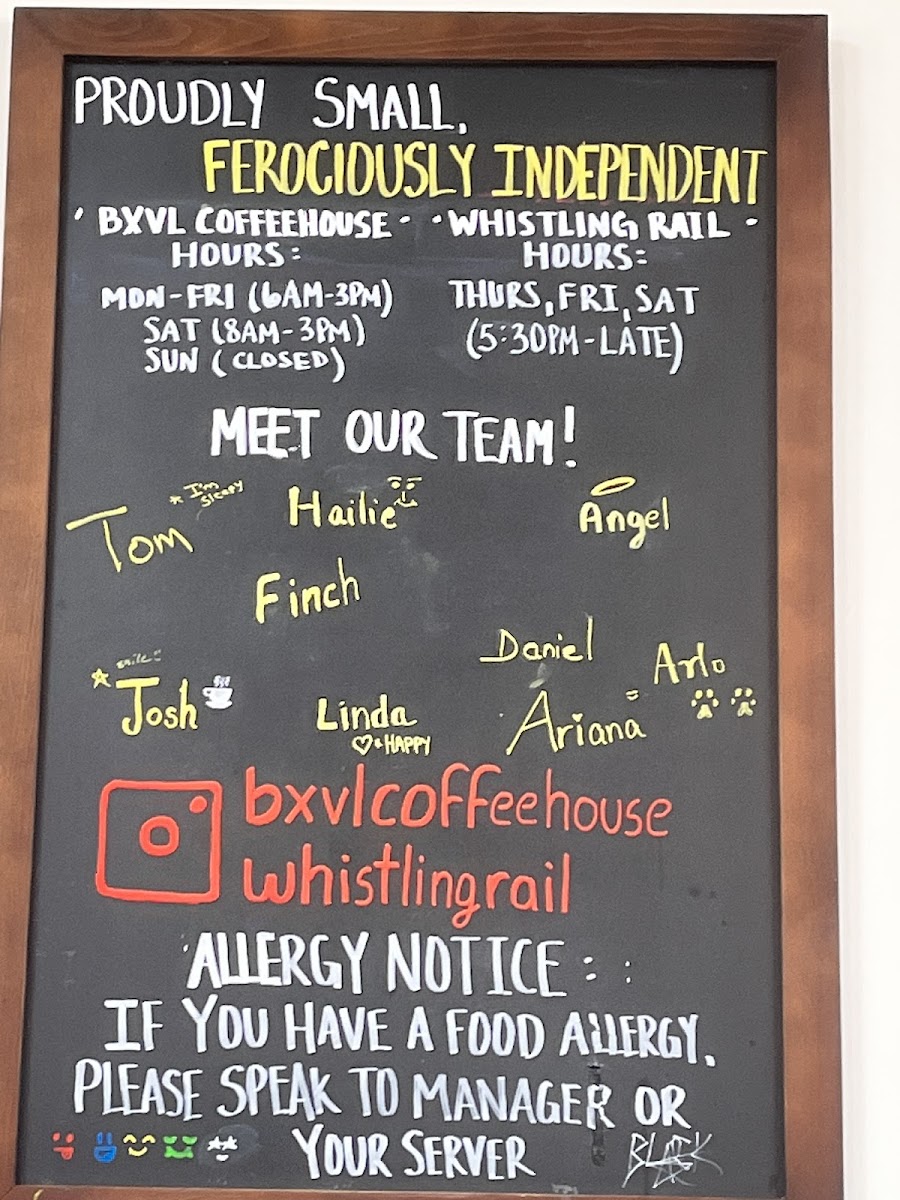 PROUDLY SMALL,
FEROCIOUSLY INDEPENDENT
BXVL COFFEEHOUSE
HOURS:
MON-FRI (6AM-3PM)
SAT (8AM-3PM)
SUN (CLOSED)
WHISTLING RAIL
HOURS:
THURS, FRI, SAT
(5:30PM-LATE)
MEET OUR TEAM!
Tom
*I'm
sleepy
Hailie
Angel
Finch
Daniel
Arlo
smile
Josh
Linda
& HAPPY
Ariana
bxvlcoffeehouse
whistlingrail
ALLERGY NOTICE:
IF YOU HAVE A FOOD ALLERGY.
PLEASE SPEAK TO MANAGER OR
YOUR SERVER